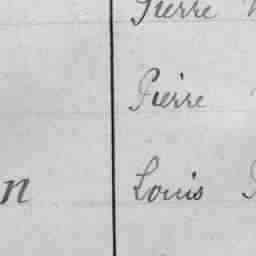 Pierre
Pierre
n Louis